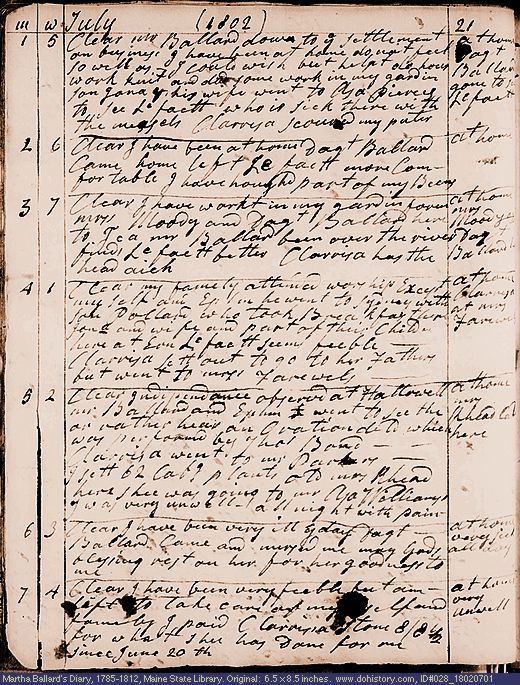 m w July (1802) 21
1 5 Clear mr Ballard down to ye settlement at home
on buiness I have been at home do not feel Dagt
so well as I could wish but helpt do hous Ballard
work knit and do some work in my gardin gone to
son Jona & his wife went to Asa pierces
to see Lafaett who is sick there with Lefaett
the meesels Clarissa scourd my puter
2 6 Clear I have been at home Dagt Ballard at home
Came home left Le faett more Com-
fortable I have how'd part of my Beens
3 7 Clear I have workt in my gardin forenn at home
mrs Moody and Dagt Ballard here mrs
to Tea mr Ballard been over the river Moody &
finds Le faett better Clarissa has the Dag Ballard here
head aich
4 1 Clear my famely attend worship Except at home
my self and Ephm he went to Sydney with Clarissa
Son Pollard who took Breakfast here at mrs
Jona and wife and part of their Childn Farewels
here at Son Lefaett seems feeble
Clarissa sett out to go to her Fathers
but went to mrs Farewels
5 2 Clear Independance observd at Hallowell at home
mr Ballard and Ephm went to see the mrs
or rather hear an Oration &c which Rhead
was performd by Thos Bond here
Clarissa went to mr Parkers
I sett 62 Cabg plants at do mrs Rhead
here shee was going to mr Asa Williams
I was very unwell all night with pain
6 3 Clear I have been very ill to day Dagt at home
Ballard Came and nursed me may Gods very sick
blessing rest on her for her goodness to all day
me
7 4 Clear I have been very feeble but am at home
left to take care of my self and very
famely I paid Clarissa Stone 8/8 1/2 unwell
for what shee has done for me
since June 20th
Martha Ballard's Diary, 1785-1812, Maine State Library. Original: 6.5 x 8.5 inches. www.dohistory.com, ID#028_18020701